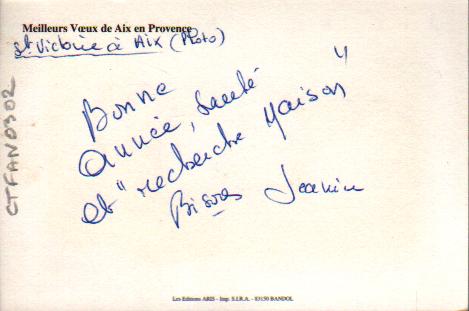 Meilleurs Vœux de Aix en Provence
St Victoire à Aix (Photo)
Bonne
Année, Santé
et "recherche Maison"
Bisous Jeanine
CTFAN0302
Les Editions ARIS - Imp. S.I.R.A. - 83150 BANDOL